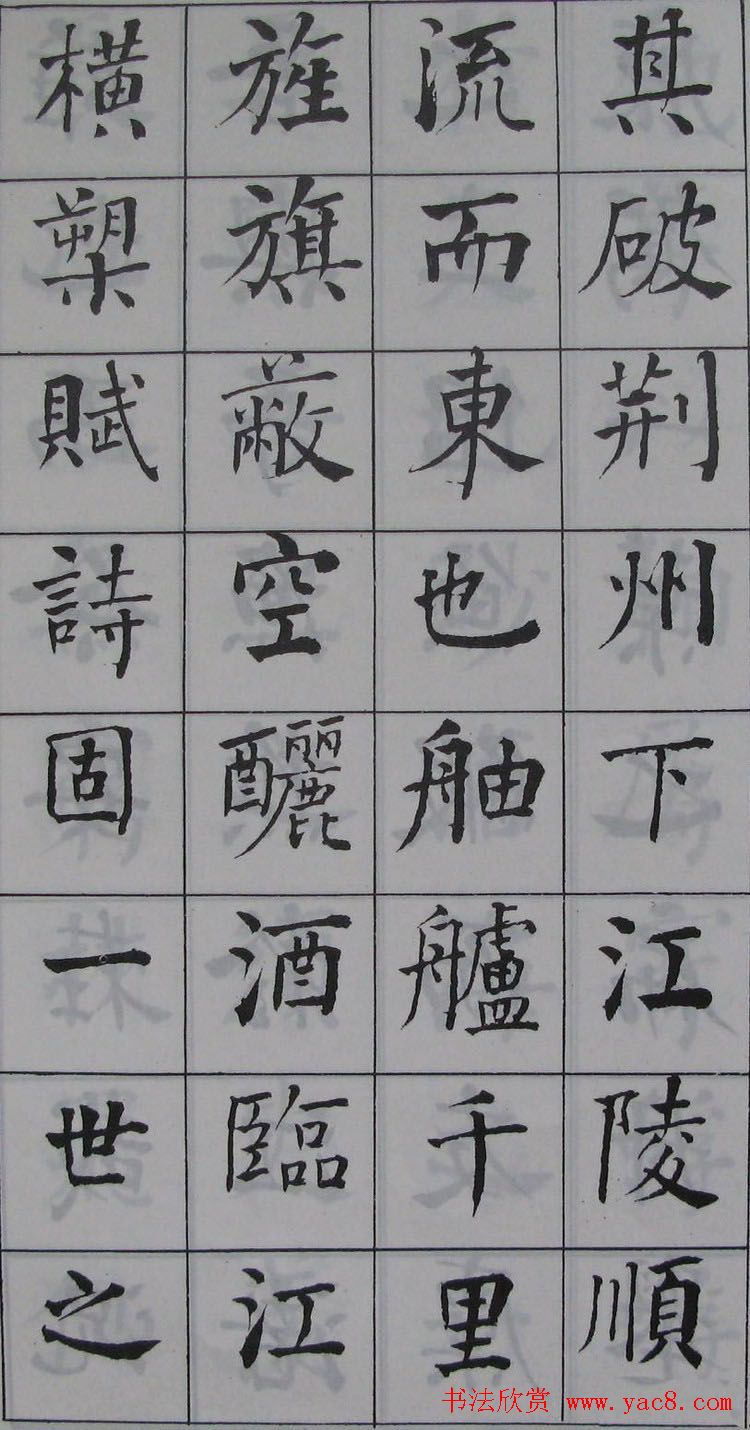 其破荆州下江陵順
流而東也舳艫千里
旌旗蔽空釃酒臨江
橫槊賦詩固一世之
书法欣赏 www.yac8.com